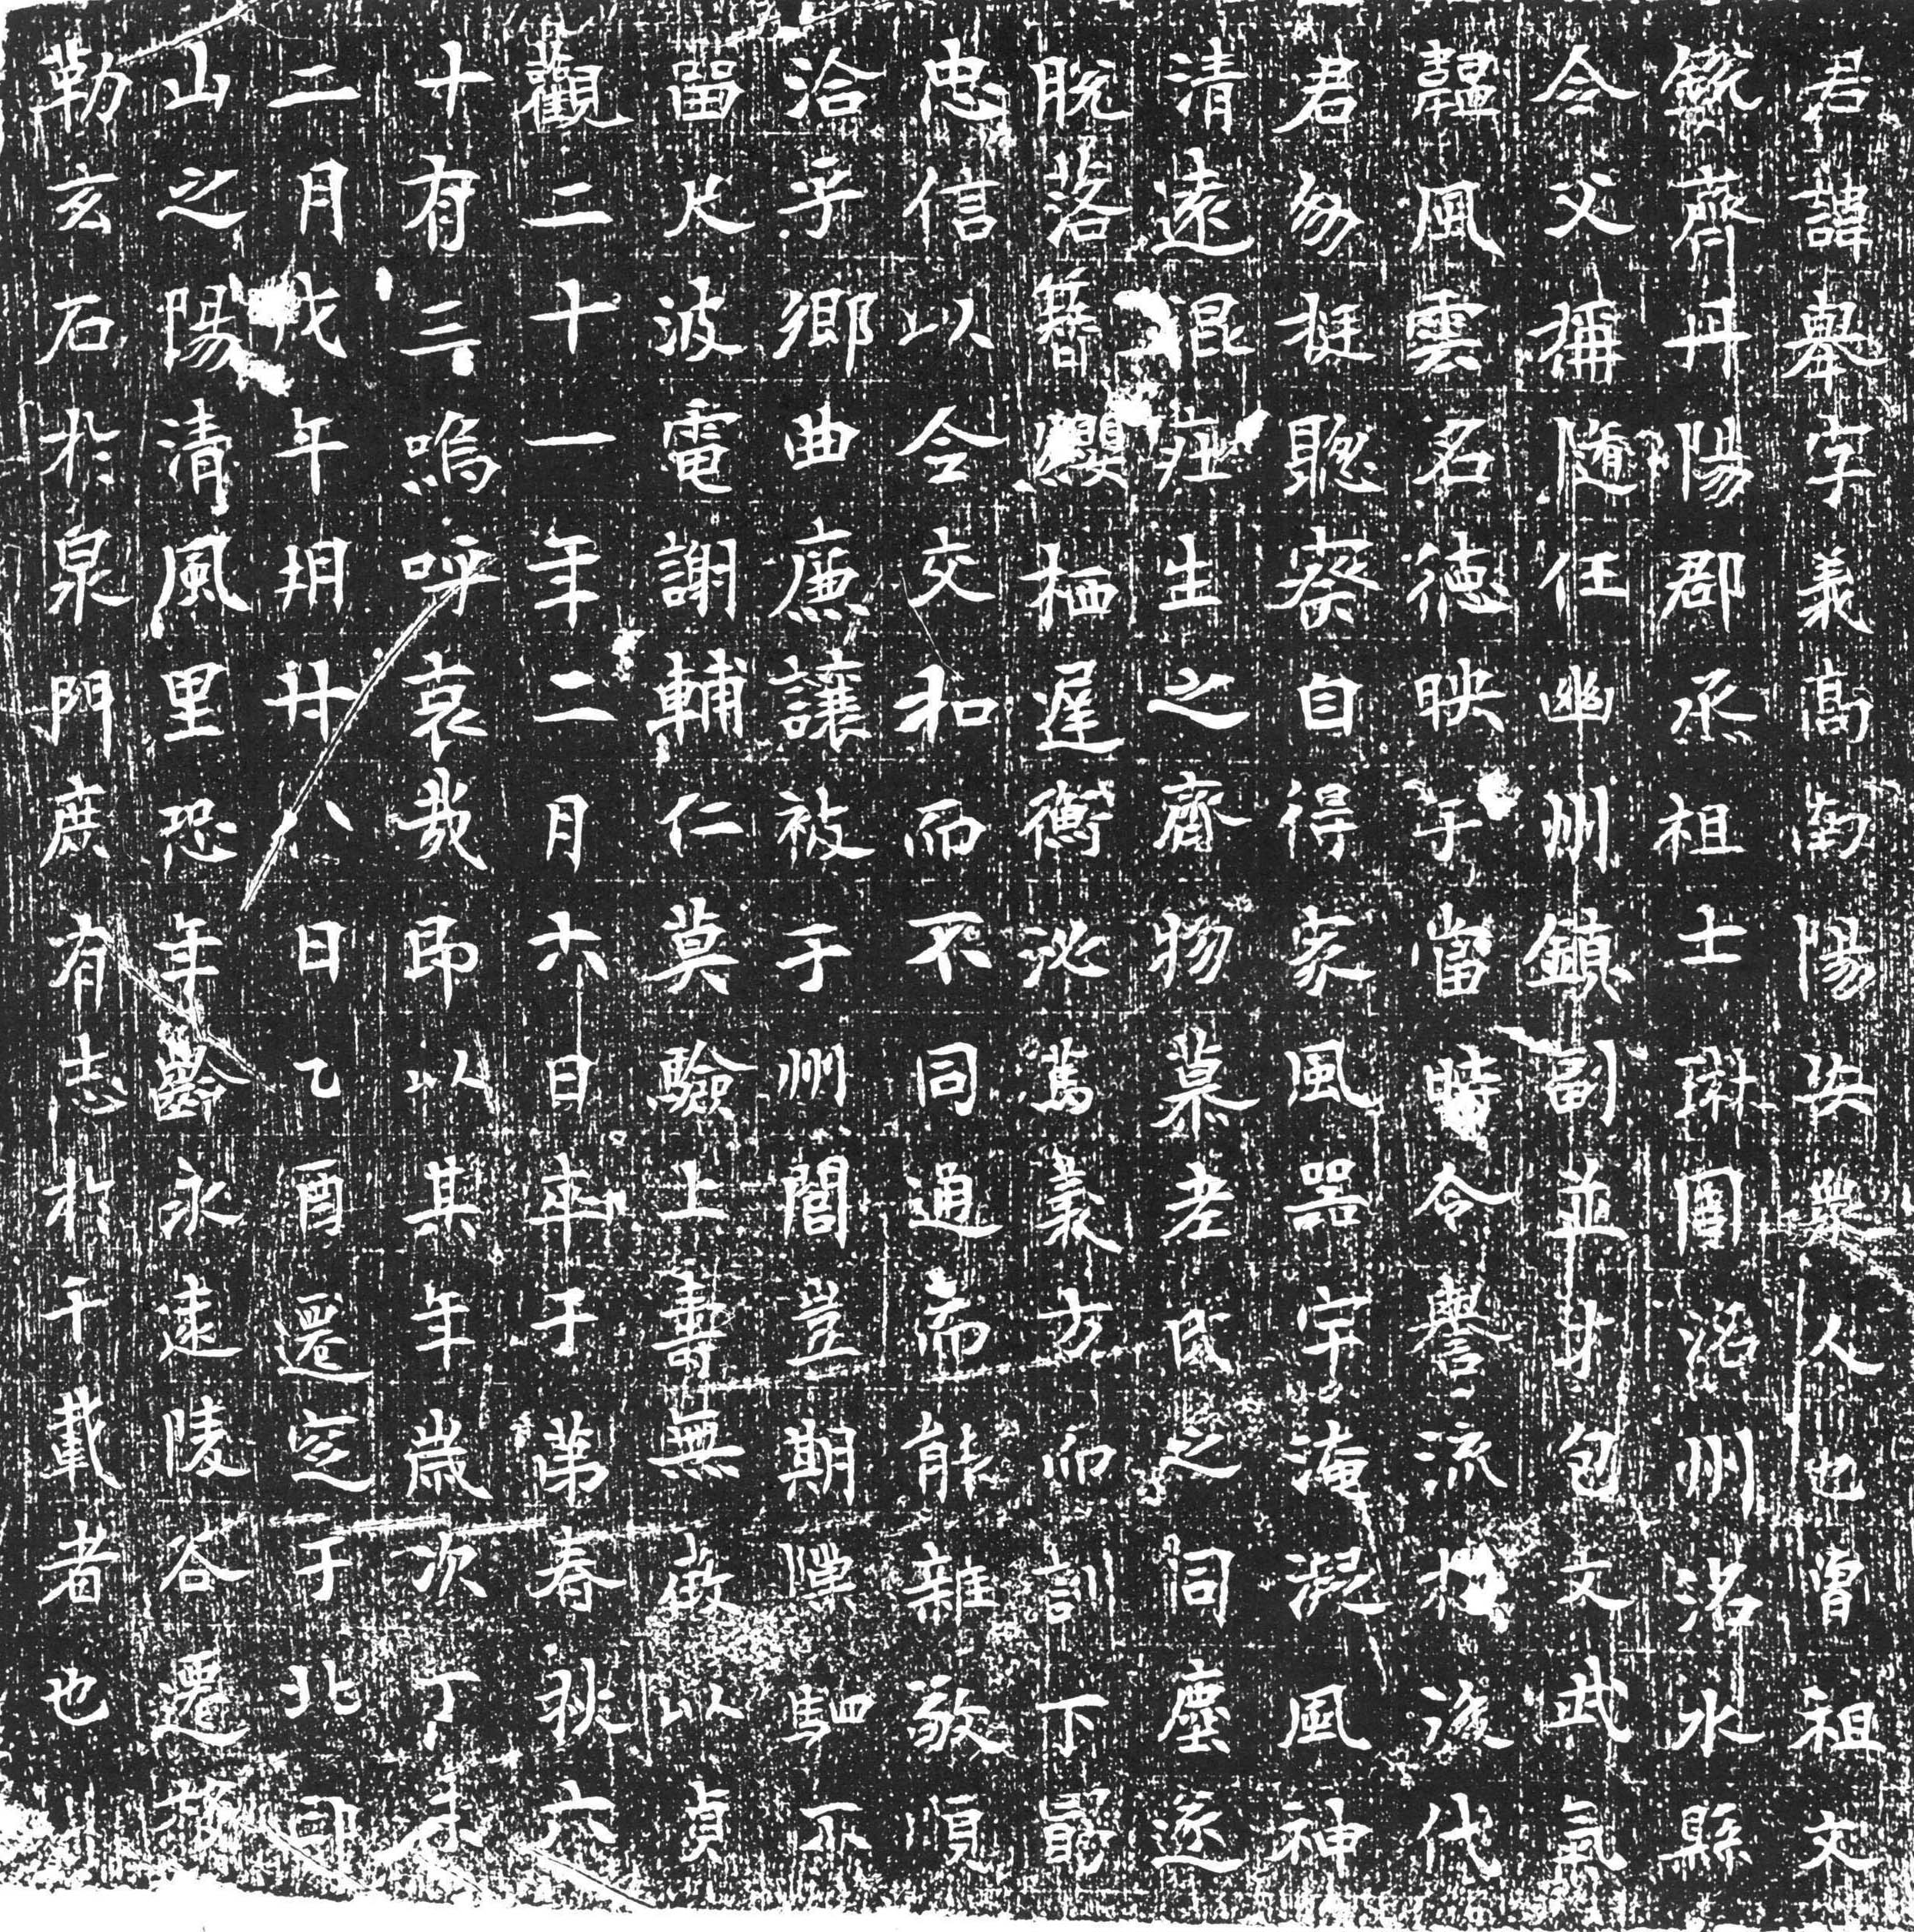 君諱舉字義高南陽安衆人也曾祖文
鋭齊丹陽郡丞祖士琳周洺州洺水縣
令父補隨任幽州鎮副並才包文武氣
韞風雲名德映乎當時令譽流於後代
君幼挺聰察自得家風器宇淹凝風神
清遠混莊生之齊物慕老氏之同塵遂
脫落簪纓栖遲衡泌篤義方而訓下罄
忠信以令交和而不同通而能雜敬順
洽乎鄉曲廉讓被于州閭豈期隟駟不
留尺波電謝輔仁莫驗上壽無徵以貞
觀二十一年二月六日卒于第春秋六
十有三嗚呼哀哉即以其年歲次丁未
二月戊午朔廿八日乙酉遷窆于北邙
山之陽清風里恐年齡永遠陵谷遷移
勒玄石於泉門庶有志於千載者也